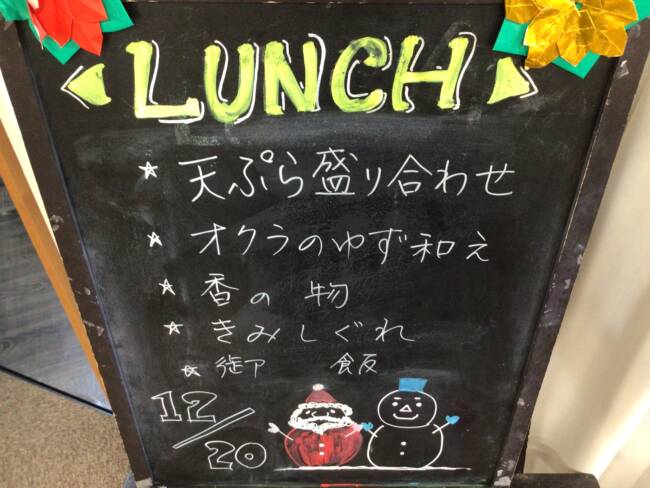 LUNCH
☆ 天ぷら盛り合わせ
☆ オクラのゆず和え
☆ 香の物
☆ きみしぐれ
12/20